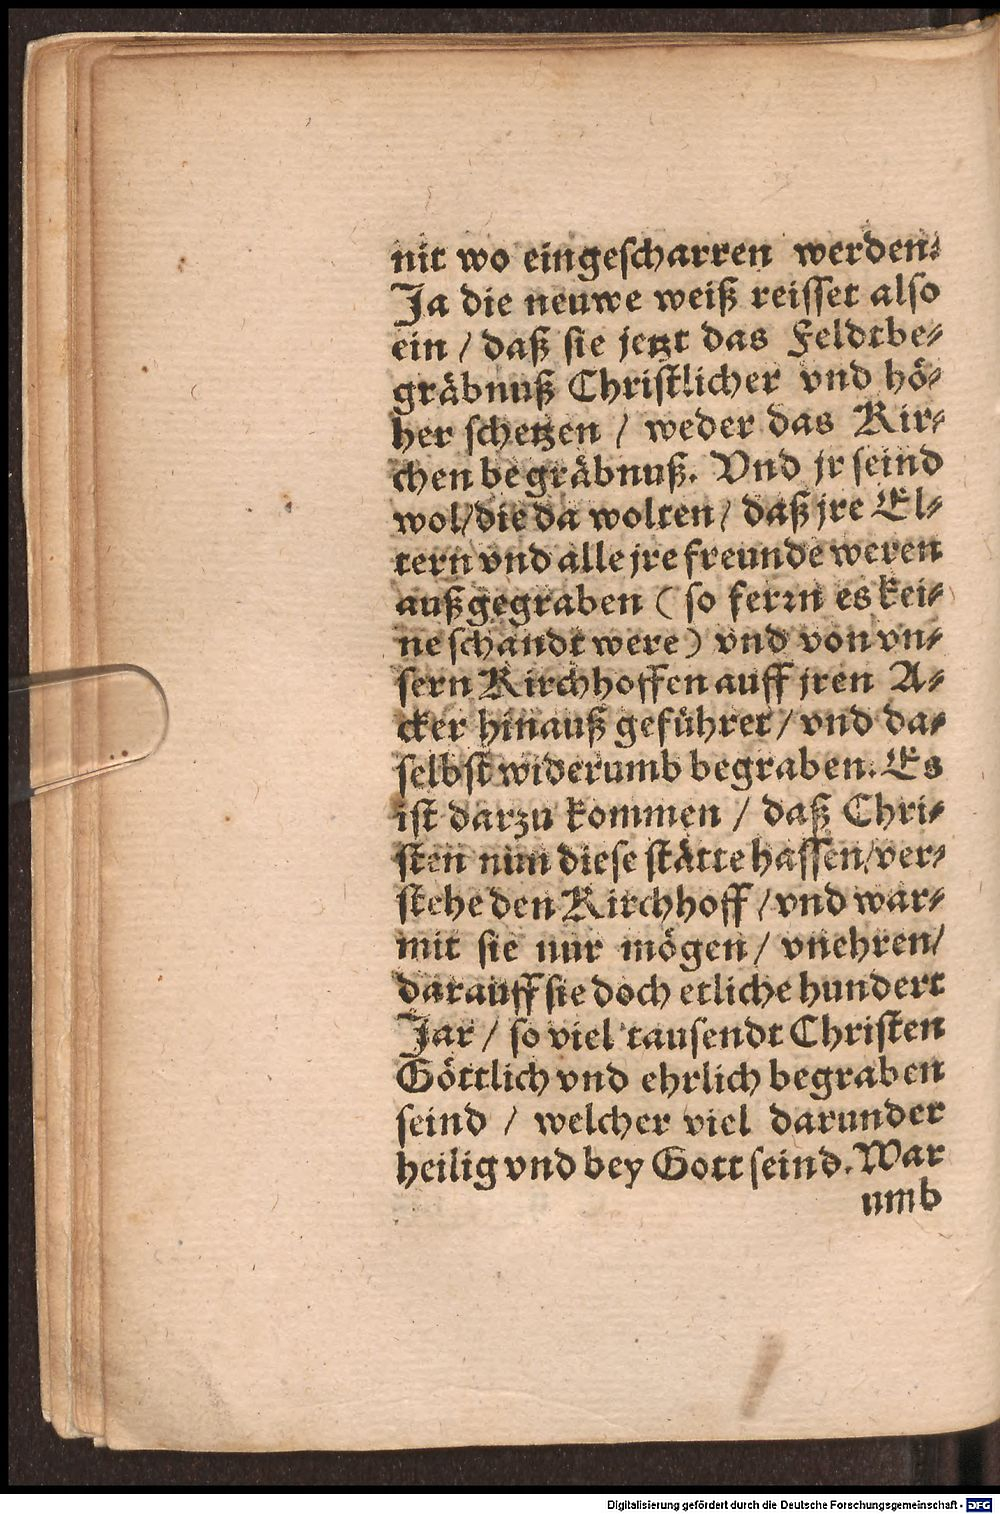 nit wo eingescharren werden.
Ja die neuwe weiß reisset also
ein / daß sie jetzt das Feldtbe-
gräbnuß Christlicher vnd hö-
her schetzen / weder das Kir-
chen begräbnuß. Vnd jr seind
wol/die da wolten / daß jre El-
tern vnd alle jre freunde weren
außgegraben (so ferꝛn es kei-
ne schandt were) vnd von vn-
sern Kirchhoffen auff jren A-
cker hinauß geführet / vnd da-
selbst widerumb begraben. Es
ist darzu kommen / daß Chri-
sten nun diese stätte hassen/ver-
stehe den Kirchhoff / vnd war-
mit sie nur mögen / vnehren/
darauff sie doch etliche hundert
Jar / so viel tausendt Christen
Göttlich vnd ehrlich begraben
seind / welcher viel darunder
heilig vnd bey Gott seind. War
umb
Digitalisierung gefördert durch die Deutsche Forschungsgemeinschaft - DFG